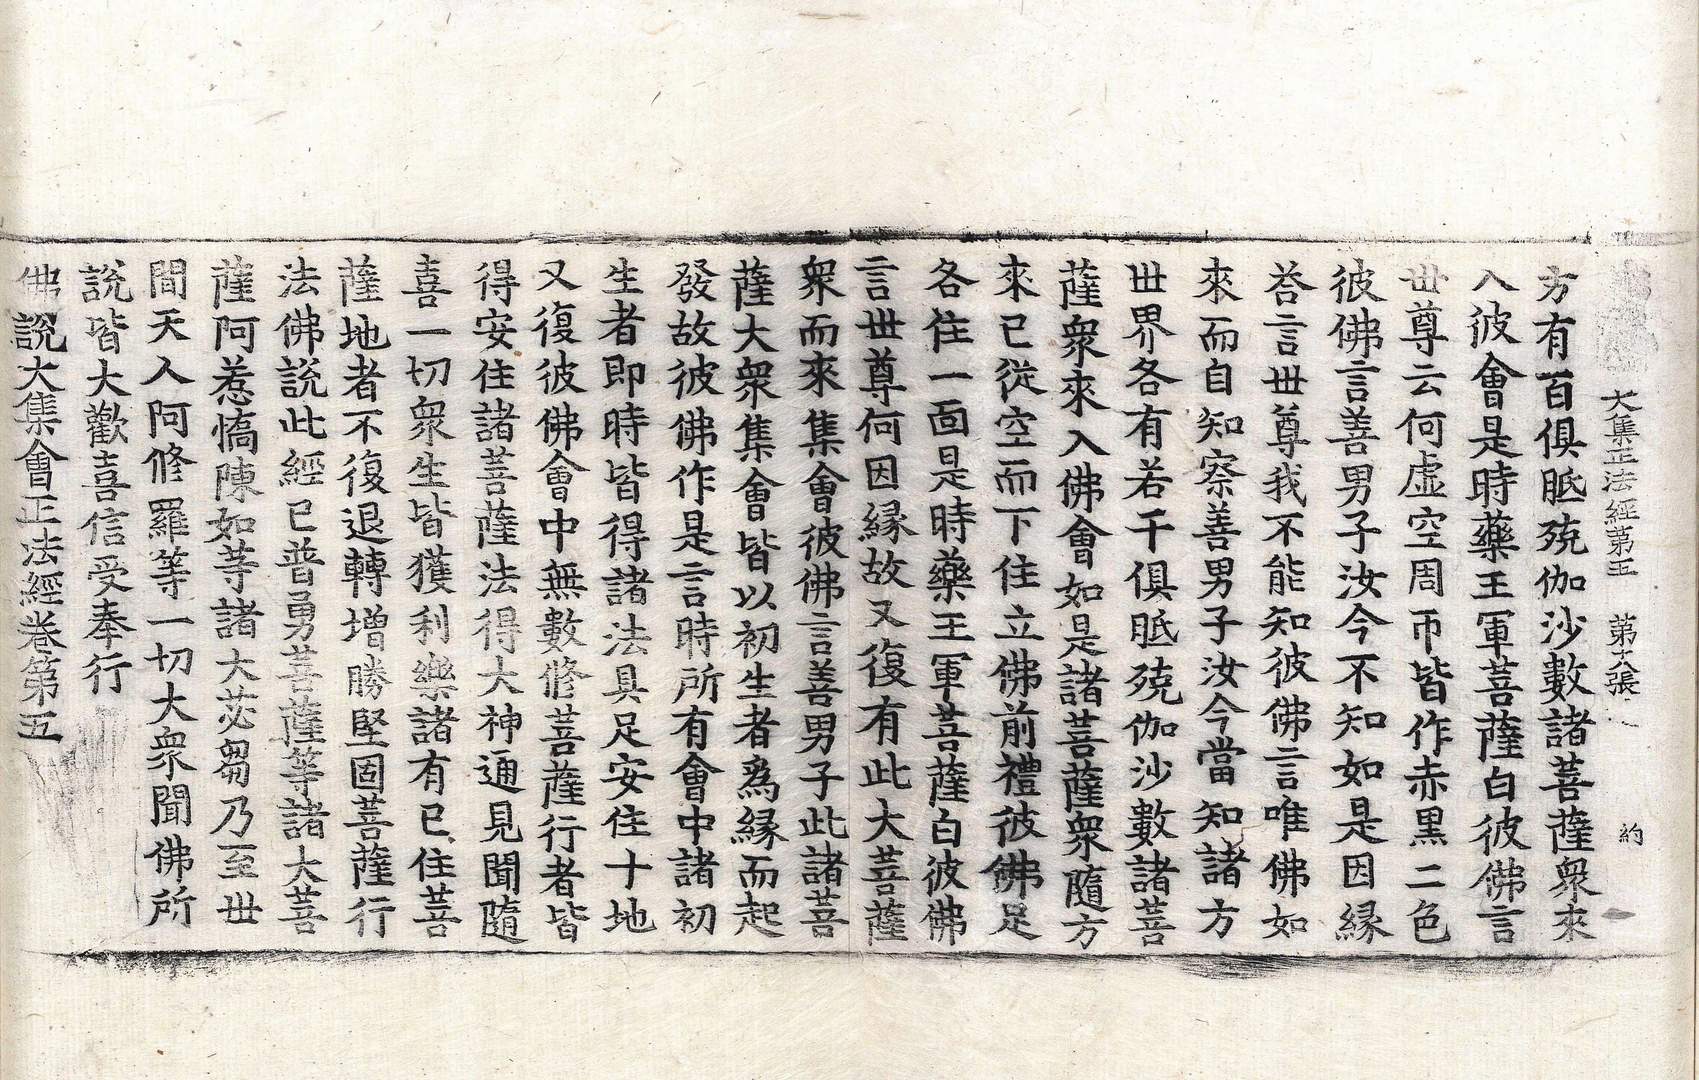 大集正法經第五 第六張 約
方有百俱胝殑伽沙數諸菩薩衆來
入彼會是時藥王軍菩薩白彼佛言
世尊云何虛空周帀皆作赤黑二色
彼佛言善男子汝今不知如是因緣
荅言世尊我不能知彼佛言唯佛如
來而自知察善男子汝今當知諸方
世界各有若干俱胝殑伽沙數諸菩
薩衆來入佛會如是諸菩薩衆隨方
來已從空而下住立佛前禮彼佛足
各住一面是時藥王軍菩薩白彼佛
言世尊何因緣故又復有此大菩薩
衆而來集會彼佛言善男子此諸菩
薩大衆集會皆以初生者爲緣而起
發故彼佛作是言時所有會中諸初
生者即時皆得諸法具足安住十地
又復彼佛會中無數修菩薩行者皆
得安住諸菩薩法得大神通見聞隨
喜一切衆生皆獲利樂諸有已住菩
薩地者不復退轉增勝堅固菩薩行
法佛說此經已普勇菩薩等諸大菩
薩阿惹憍陳如等諸大苾芻乃至世
間天人阿修羅等一切大衆聞佛所
說皆大歡喜信受奉行
佛說大集會正法經卷第五